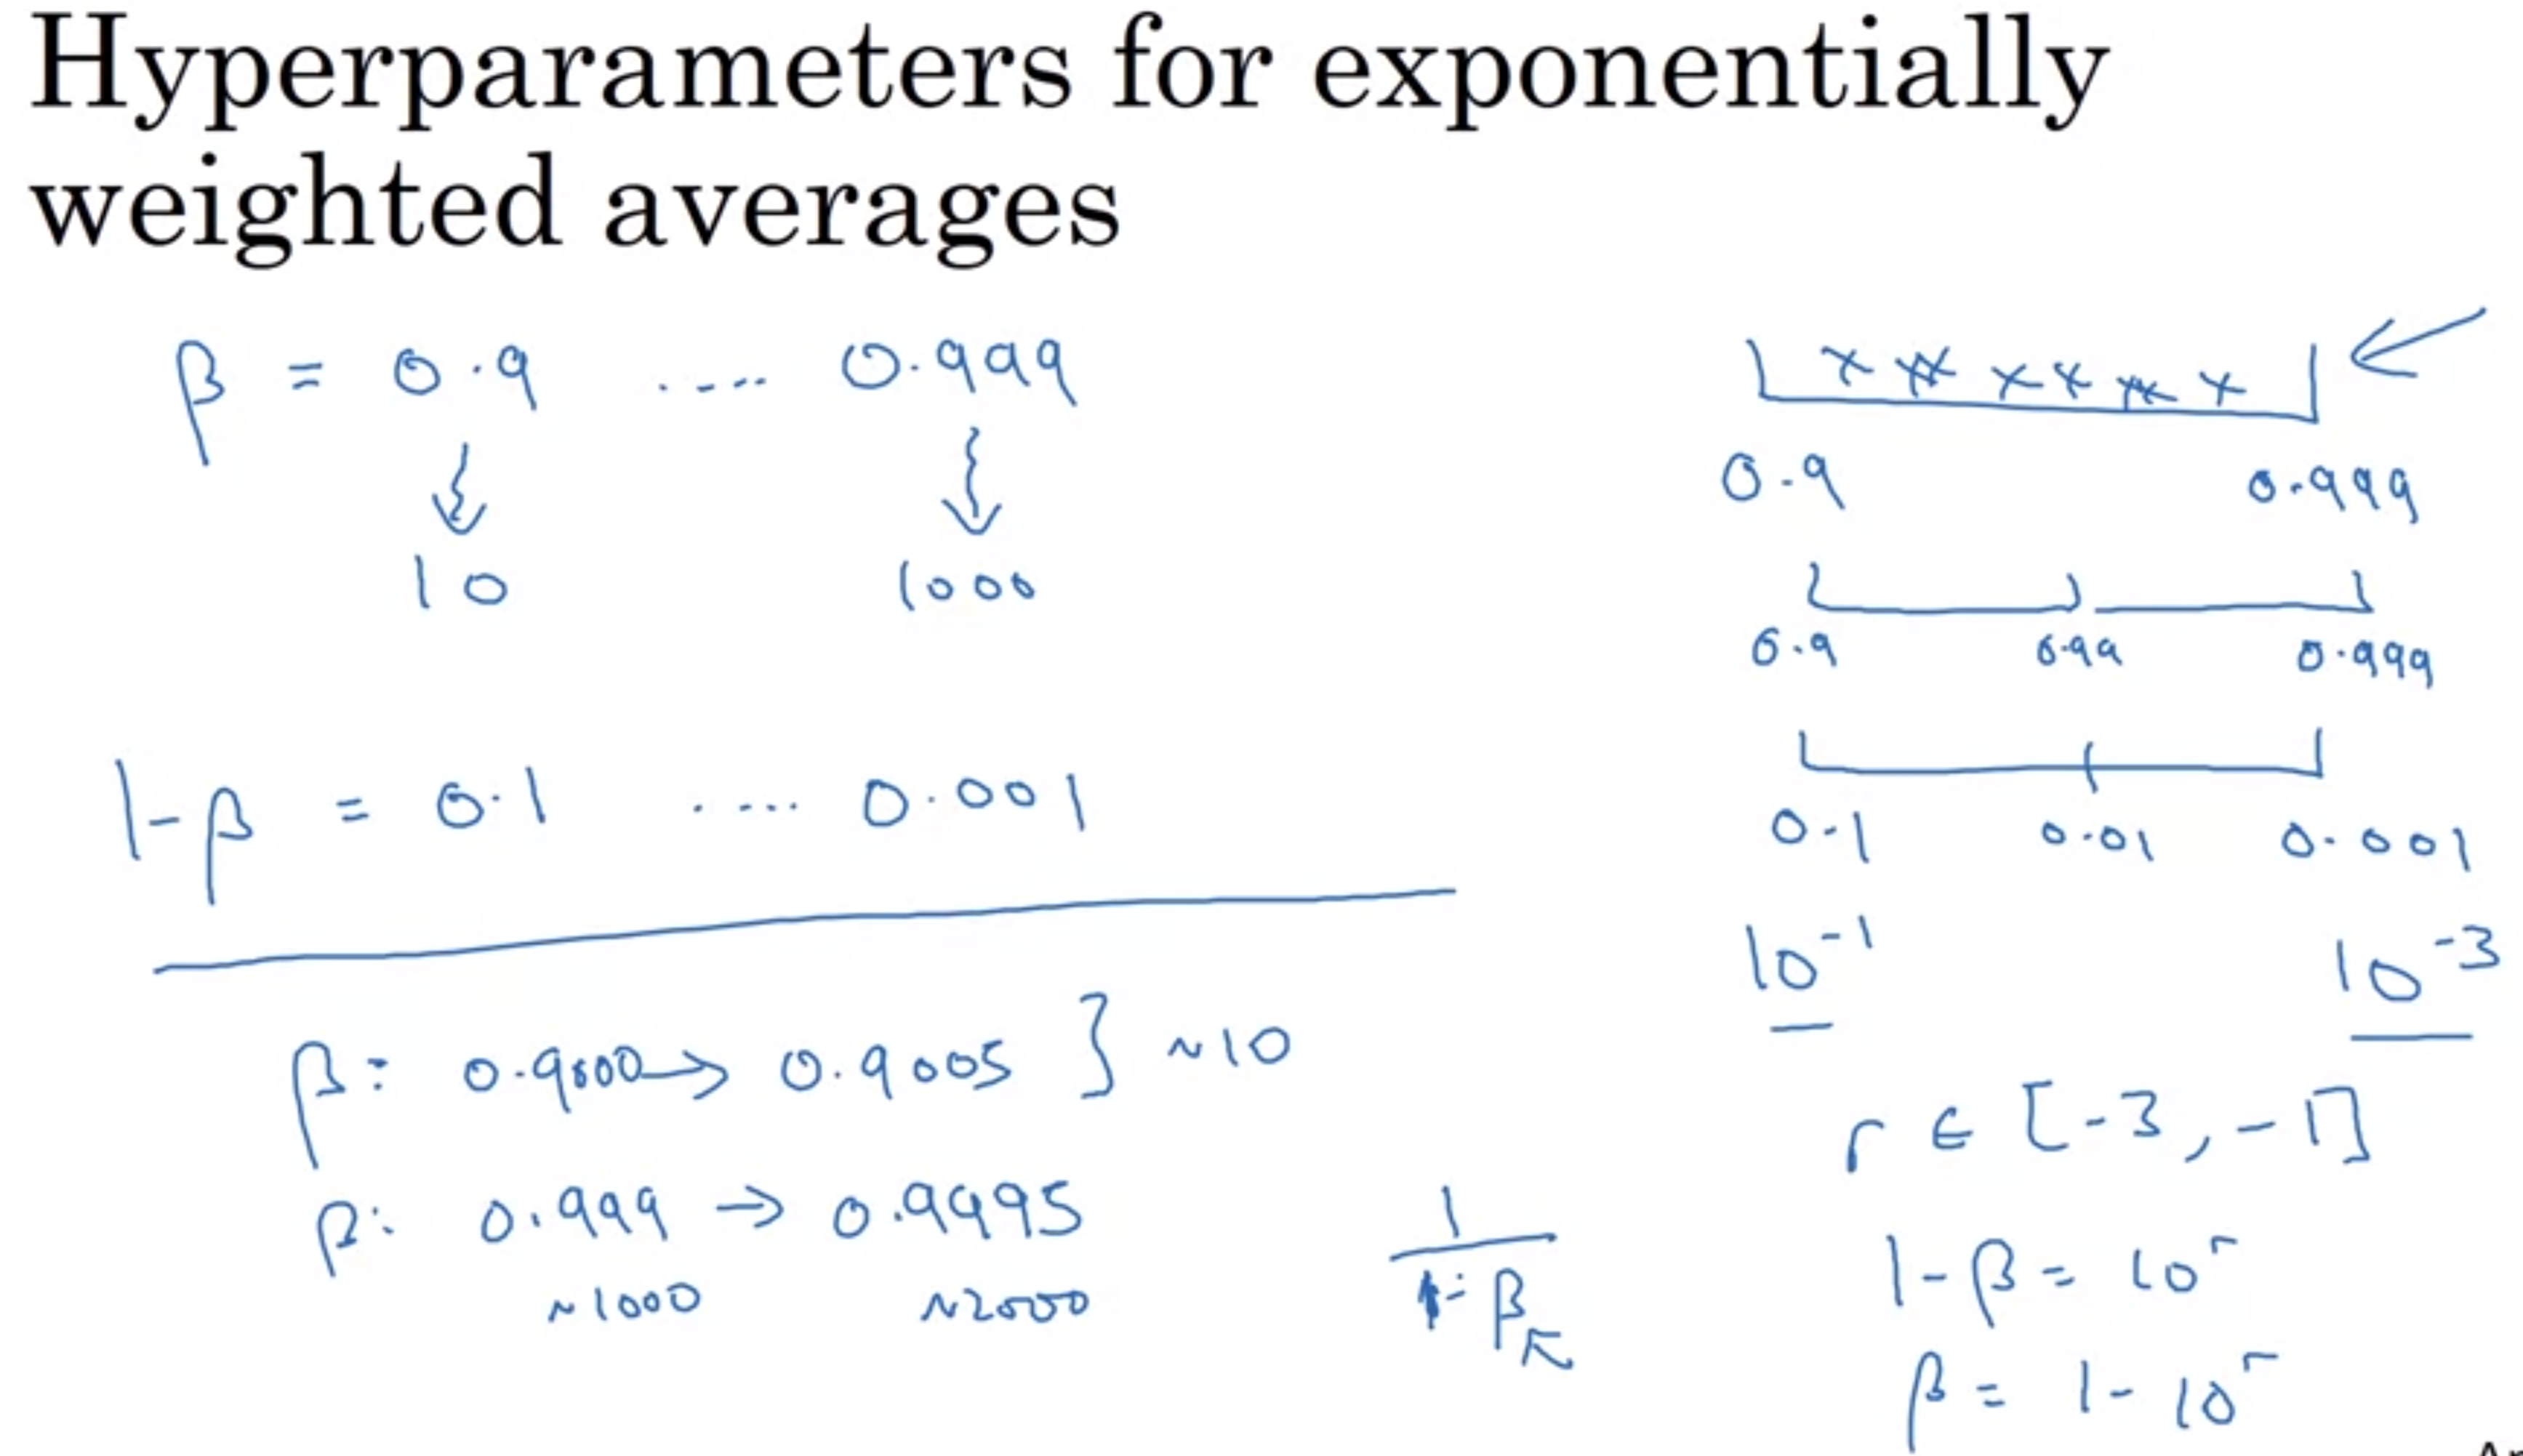 Hyperparameters for exponentially
weighted averages
β = 0.9 .... 0.999
10 1000
1-β = 0.1 .... 0.001
β: 0.9000 → 0.9005 } ~10
β: 0.999 → 0.9995
~1000 ~2000
1
1-β
0.9 0.999
0.9 0.99 0.999
0.1 0.01 0.001
10⁻¹ 10⁻³
r ∈ [-3, -1]
1-β = 10ʳ
β = 1-10ʳ